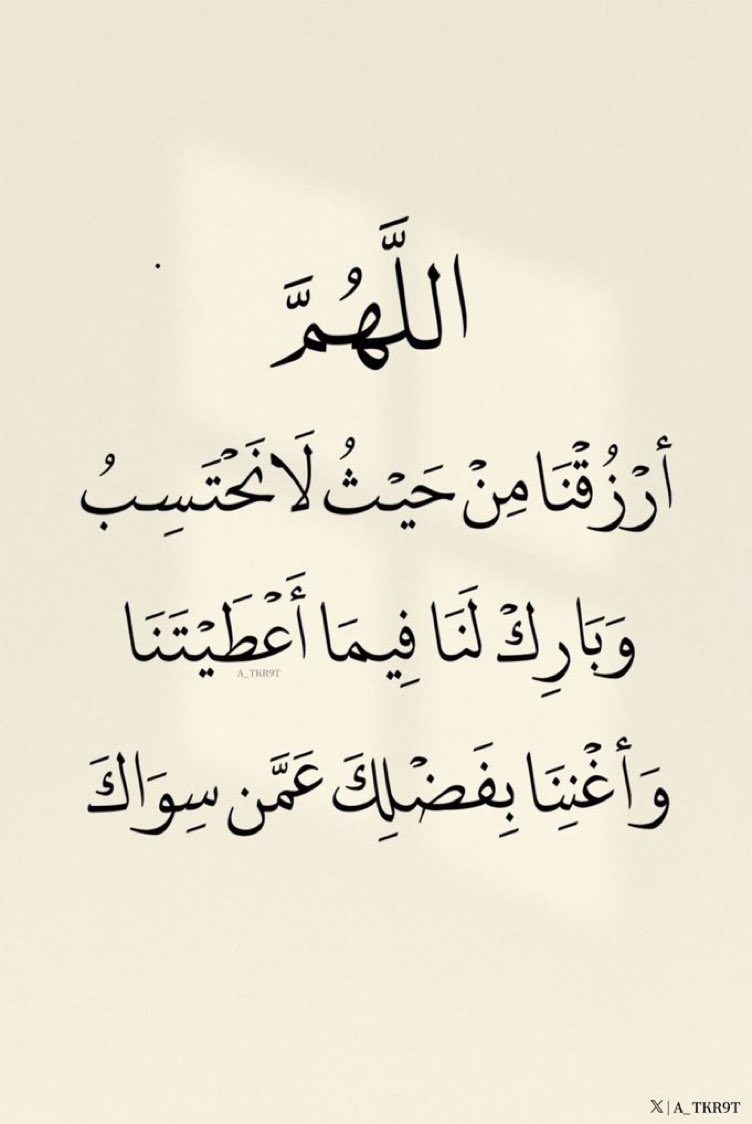 اللَّهُمَّ
أرْزُقْنَا مِنْ حَيْثُ لَا نَحْتَسِبُ
وَبَارِكْ لَنَا فِيمَا أَعْطَيْتَنَا
A_TKR9T
وَأغْنِنَا بِفَضْلِكَ عَمَّن سِوَاكَ
𝕏 | A_TKR9T